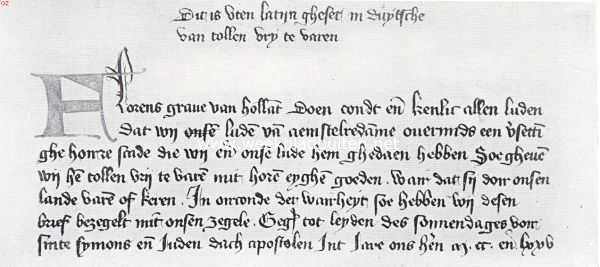 Dit is vten latijn gheset in duytsche
van tollen vry te varen
Florens graue van hollant Doen condt eñ kenlic allen luden
dat wij onsen ludẽ vã aemstelredãme ouermids een
ghe scade die wij eñ onse lude hem ghedaen hebben Soe gheuẽ
wij hẽ tollen vrij te varẽ mit horẽ eyghẽ goeden. Wair dat sij doir onsen
lande varẽ of keren. In orconde der wairheyt soe hebben wij desen
brief bezegelt mit onsen zegele. Geg tot leyden des sonnendages voir
sinte symons eñ Juden dach apostolen Int Jare ons hẽn m. cc. eñ lxxv